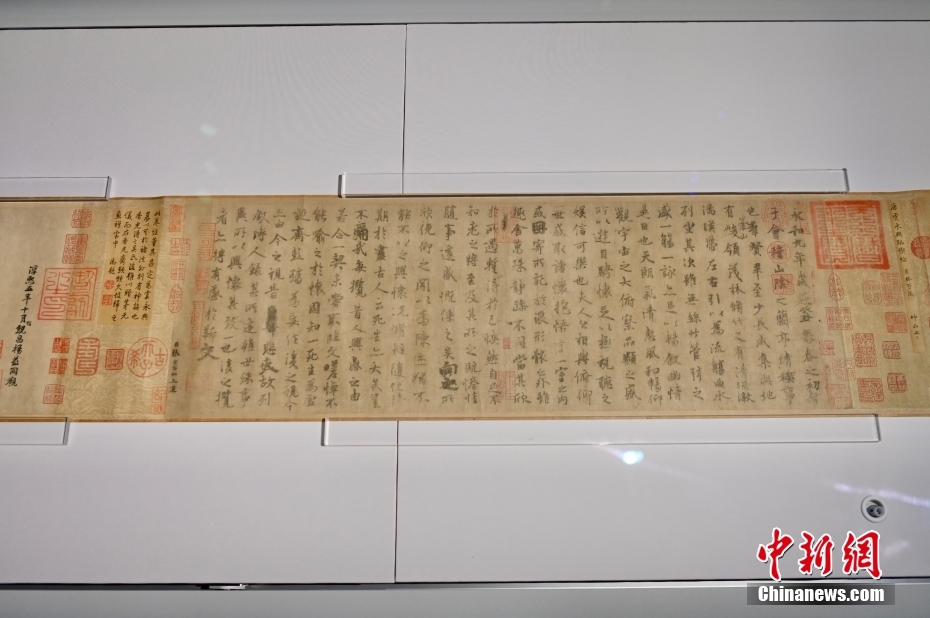 唐虞永興臨禊帖
永和九年歲在癸丑暮春之初會
于會稽山陰之蘭亭脩禊事
也群賢畢至少長咸集此地
有崇山峻領茂林脩竹又有清流激
湍暎帶左右引以為流觴曲水
列坐其次雖無絲竹管弦之
盛一觴一詠亦足以暢敘幽情
是日也天朗氣清惠風和暢仰
觀宇宙之大俯察品類之盛
所以遊目騁懷足以極視聽之
娛信可樂也夫人之相與俯仰
一世或取諸懷抱悟言一室之內
或因寄所託放浪形骸之外雖
趣舍萬殊靜躁不同當其欣
於所遇暫得於己怏然自足不
知老之將至及其所之既惓情
隨事遷感慨係之矣向之所
欣俛仰之閒以為陳迹猶不
能不以之興懷況脩短隨化終
期於盡古人云死生亦大矣豈
不痛哉每攬昔人興感之由
若合一契未嘗不臨文嗟悼不
能喻之於懷固知一死生為虛
誕齊彭殤為妄作後之視今
亦由今之視昔悲夫故列
敘時人錄其所述雖世殊事
異所以興懷其致一也後之攬
者亦將有感於斯文
此卷經董其昌定為虞永興
摹以其於褚法外別有神韻也
淳熙五年十月魏昌楊益同觀
中新網
Chinanews.com